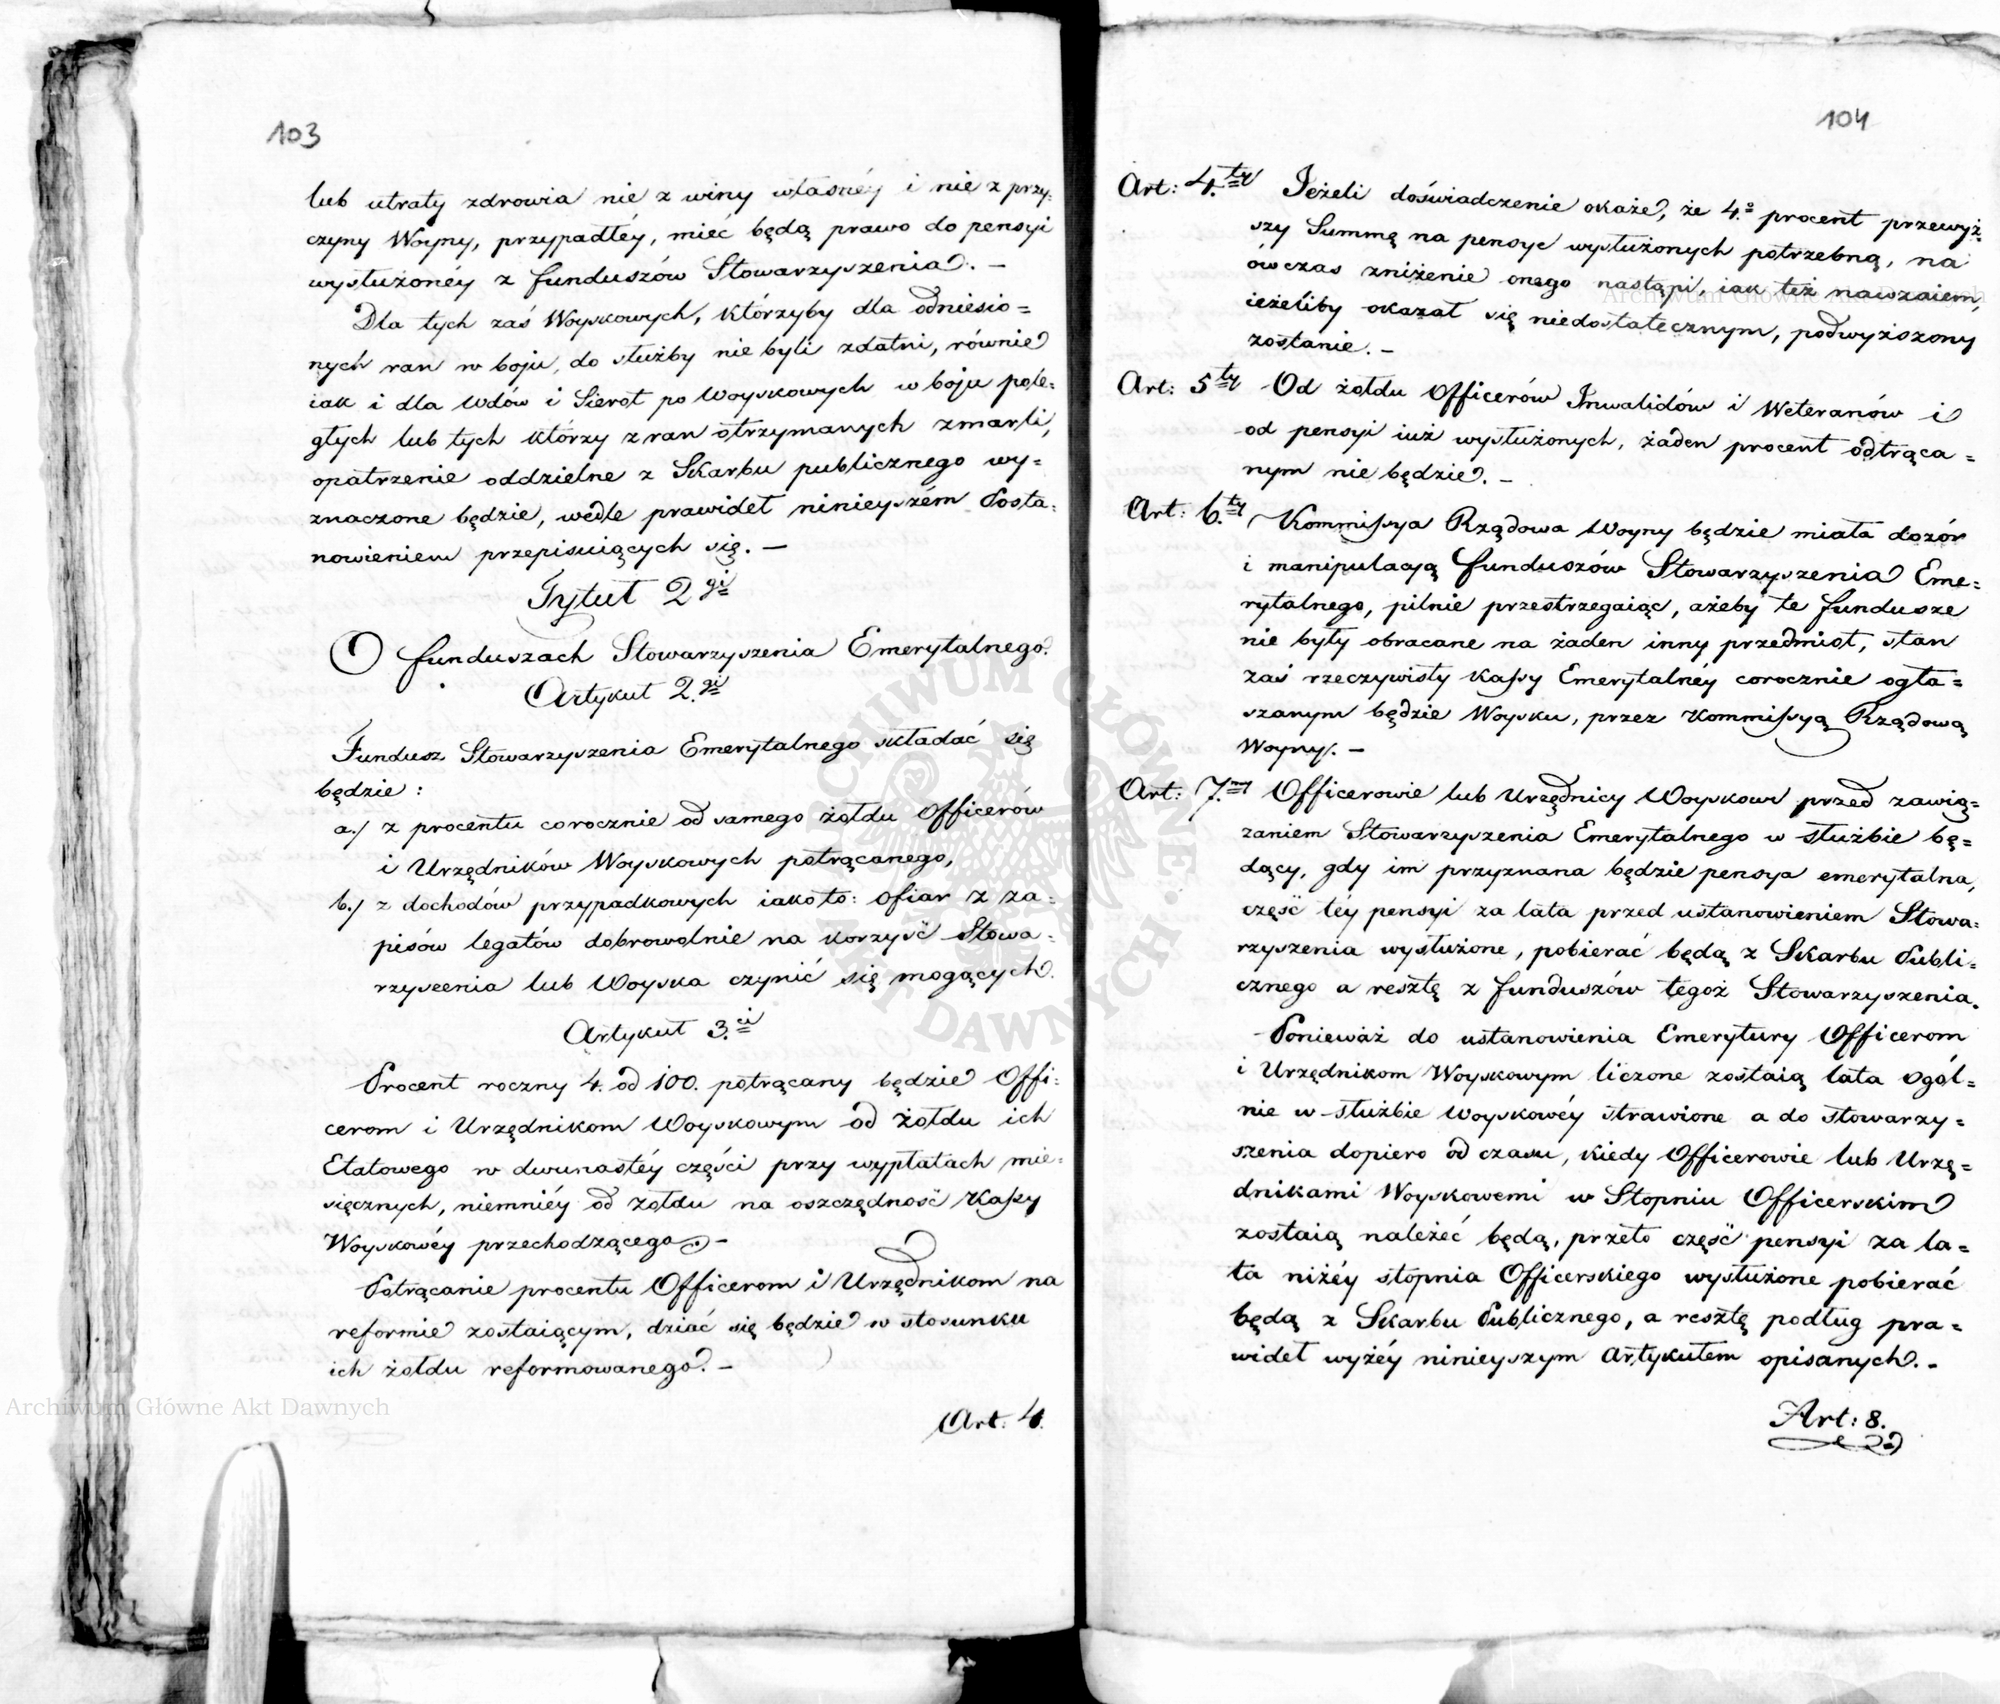 103
lub utraty zdrowia nie z winy własnéy i nie z przy-
czyny Woyny, przypadłéy, mieć będą prawo do pensyi
wysłużonéy z funduszów Stowarzyszenia. –
Dla tych zaś Woyskowych, którzyby dla odniesio=
nych ran w boju, do służby nie byli zdatni, równie
iak i dla Wdów i Sierot po Woyskowych w boju pole=
głych lub tych którzy z ran otrzymanych zmarli,
opatrzenie oddzielne z Skarbu publicznego wy=
znaczone będzie, wedle prawideł ninieyszém Posta=
nowieniem przepisuiących się. –
Tytuł 2gi
O funduszach Stowarzyszenia Emerytalnego.
Artykuł 2.gi
Fundusz Stowarzyszenia Emerytalnego składać się
będzie :
a./ z procentu corocznie od samego żołdu Officerów
i Urzędników Woyskowych potrącanego,
b./ z dochodów przypadkowych iako to: ofiar z za=
pisów legatów dobrowolnie na korzyść Stowa=
rzyszenia lub Woyska czynić się mogących.
Artykuł 3.ci
Procent roczny 4. od 100. potrącany będzie Offi=
cerom i Urzędnikom Woyskowym od żołdu ich
Etatowego w dwunastéy części przy wypłatach mie=
sięcznych, niemniéy od żołdu na oszczędność Kassy
Woyskowéy przechodzącego. –
Potrącanie procentu Officerom i Urzędnikom na
reformie zostaiącym, dziać się będzie w stosunku
ich żołdu reformowanego. –
Art. 4.
104
Art: 4.ty Jeżeli doświadczenie okaże, że 4.o procent przewyż=
szy Summę na pensye wysłużonych potrzebną, na
ówczas zniżenie onego nastąpi, iak też nawzaiem,
ieżeliby okazał się niedostatecznym, podwyższony
zostanie. –
Art: 5ty Od żołdu Officerów Inwalidów i Weteranów i
od pensyi iuż wysłużonych, żaden procent odtrąca=
nym nie będzie. –
Art: 6.ty Kommissya Rządowa Woyny będzie miała dozór
i manipulacyą funduszów Stowarzyszenia Eme=
rytalnego, pilnie przestrzegaiąc, ażeby te fundusze
nie były obracane na żaden inny przedmiot, stan
zaś rzeczywisty Kassy Emerytalnéy corocznie ogła=
szanym będzie Woysku, przez Kommissyą Rządową
Woyny. –
Art: 7.my Officerowie lub Urzędnicy Woyskowi przed zawią=
zaniem Stowarzyszenia Emerytalnego w służbie bę=
dący, gdy im przyznana będzie pensya emerytalna,
część téy pensyi za lata przed ustanowieniem Stowa=
rzyszenia wysłużone, pobierać będą z Skarbu Publi=
cznego a resztę z funduszów tegoż Stowarzyszenia.
Ponieważ do ustanowienia Emerytury Officerom
i Urzędnikom Woyskowym liczone zostaią lata ogól=
nie w służbie Woyskowéy strawione a do stowarzy=
szenia dopiero od czasu, kiedy Officerowie lub Urzę=
dnikami Woyskowemi w Stopniu Officerskim
zostaią należeć będą, przeto część pensyi za la=
ta niżéy stopnia Officerskiego wysłużone pobierać
będą z Skarbu Publicznego, a resztę podług pra=
wideł wyżéy ninieyszym Artykułem opisanych. –
Art: 8.
Archiwum Główne Akt Dawnych
Archiwum Główne Akt Dawnych
ARCHIWUM GŁÓWNE AKT DAWNYCH